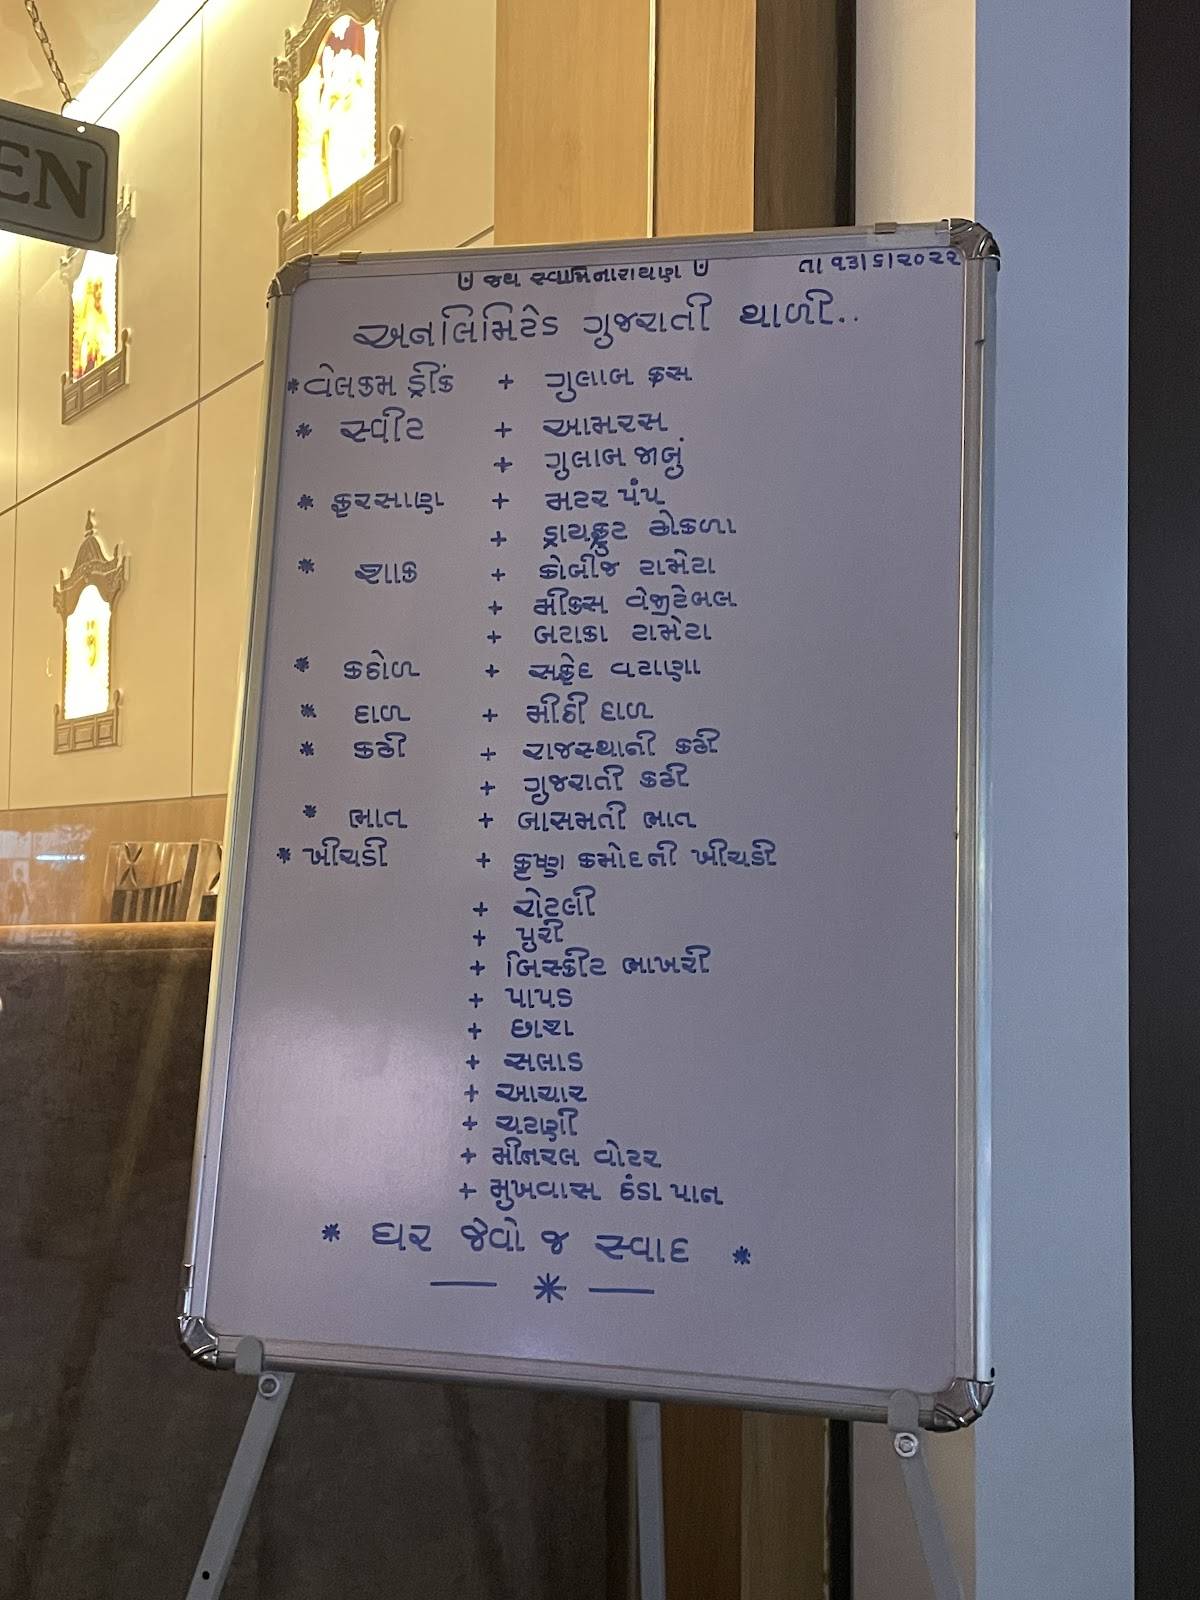 EN
॥ જય સ્વામિનારાયણ ॥
તા ૧૩/૬/૨૦૨૨
અનલિમિટેડ ગુજરાતી થાળી..
* વેલકમ ડ્રીંક + ગુલાબ ક્રસ
* સ્વીટ + આમરસ
+ ગુલાબ જાબું
* ફરસાણ + મટર પંપ
+ ડ્રાયફ્રુટ ઢોકળા
* શાક + કોબીજ ટામેટા
+ મીક્સ વેજીટેબલ
+ બટાકા ટામેટા
* કઠોળ + સફેદ વટાણા
* દાળ + મીઠી દાળ
* કઢી + રાજસ્થાની કઢી
+ ગુજરાતી કઢી
* ભાત + બાસમતી ભાત
* ખીચડી + કૃષ્ણ કમોદની ખીચડી
+ રોટલી
+ પુરી
+ બિસ્કીટ ભાખરી
+ પાપડ
+ છાશ
+ સલાડ
+ આચાર
+ ચટણી
+ મીનરલ વોટર
+ મુખવાસ ઠંડા પાન
* ઘર જેવો જ સ્વાદ *